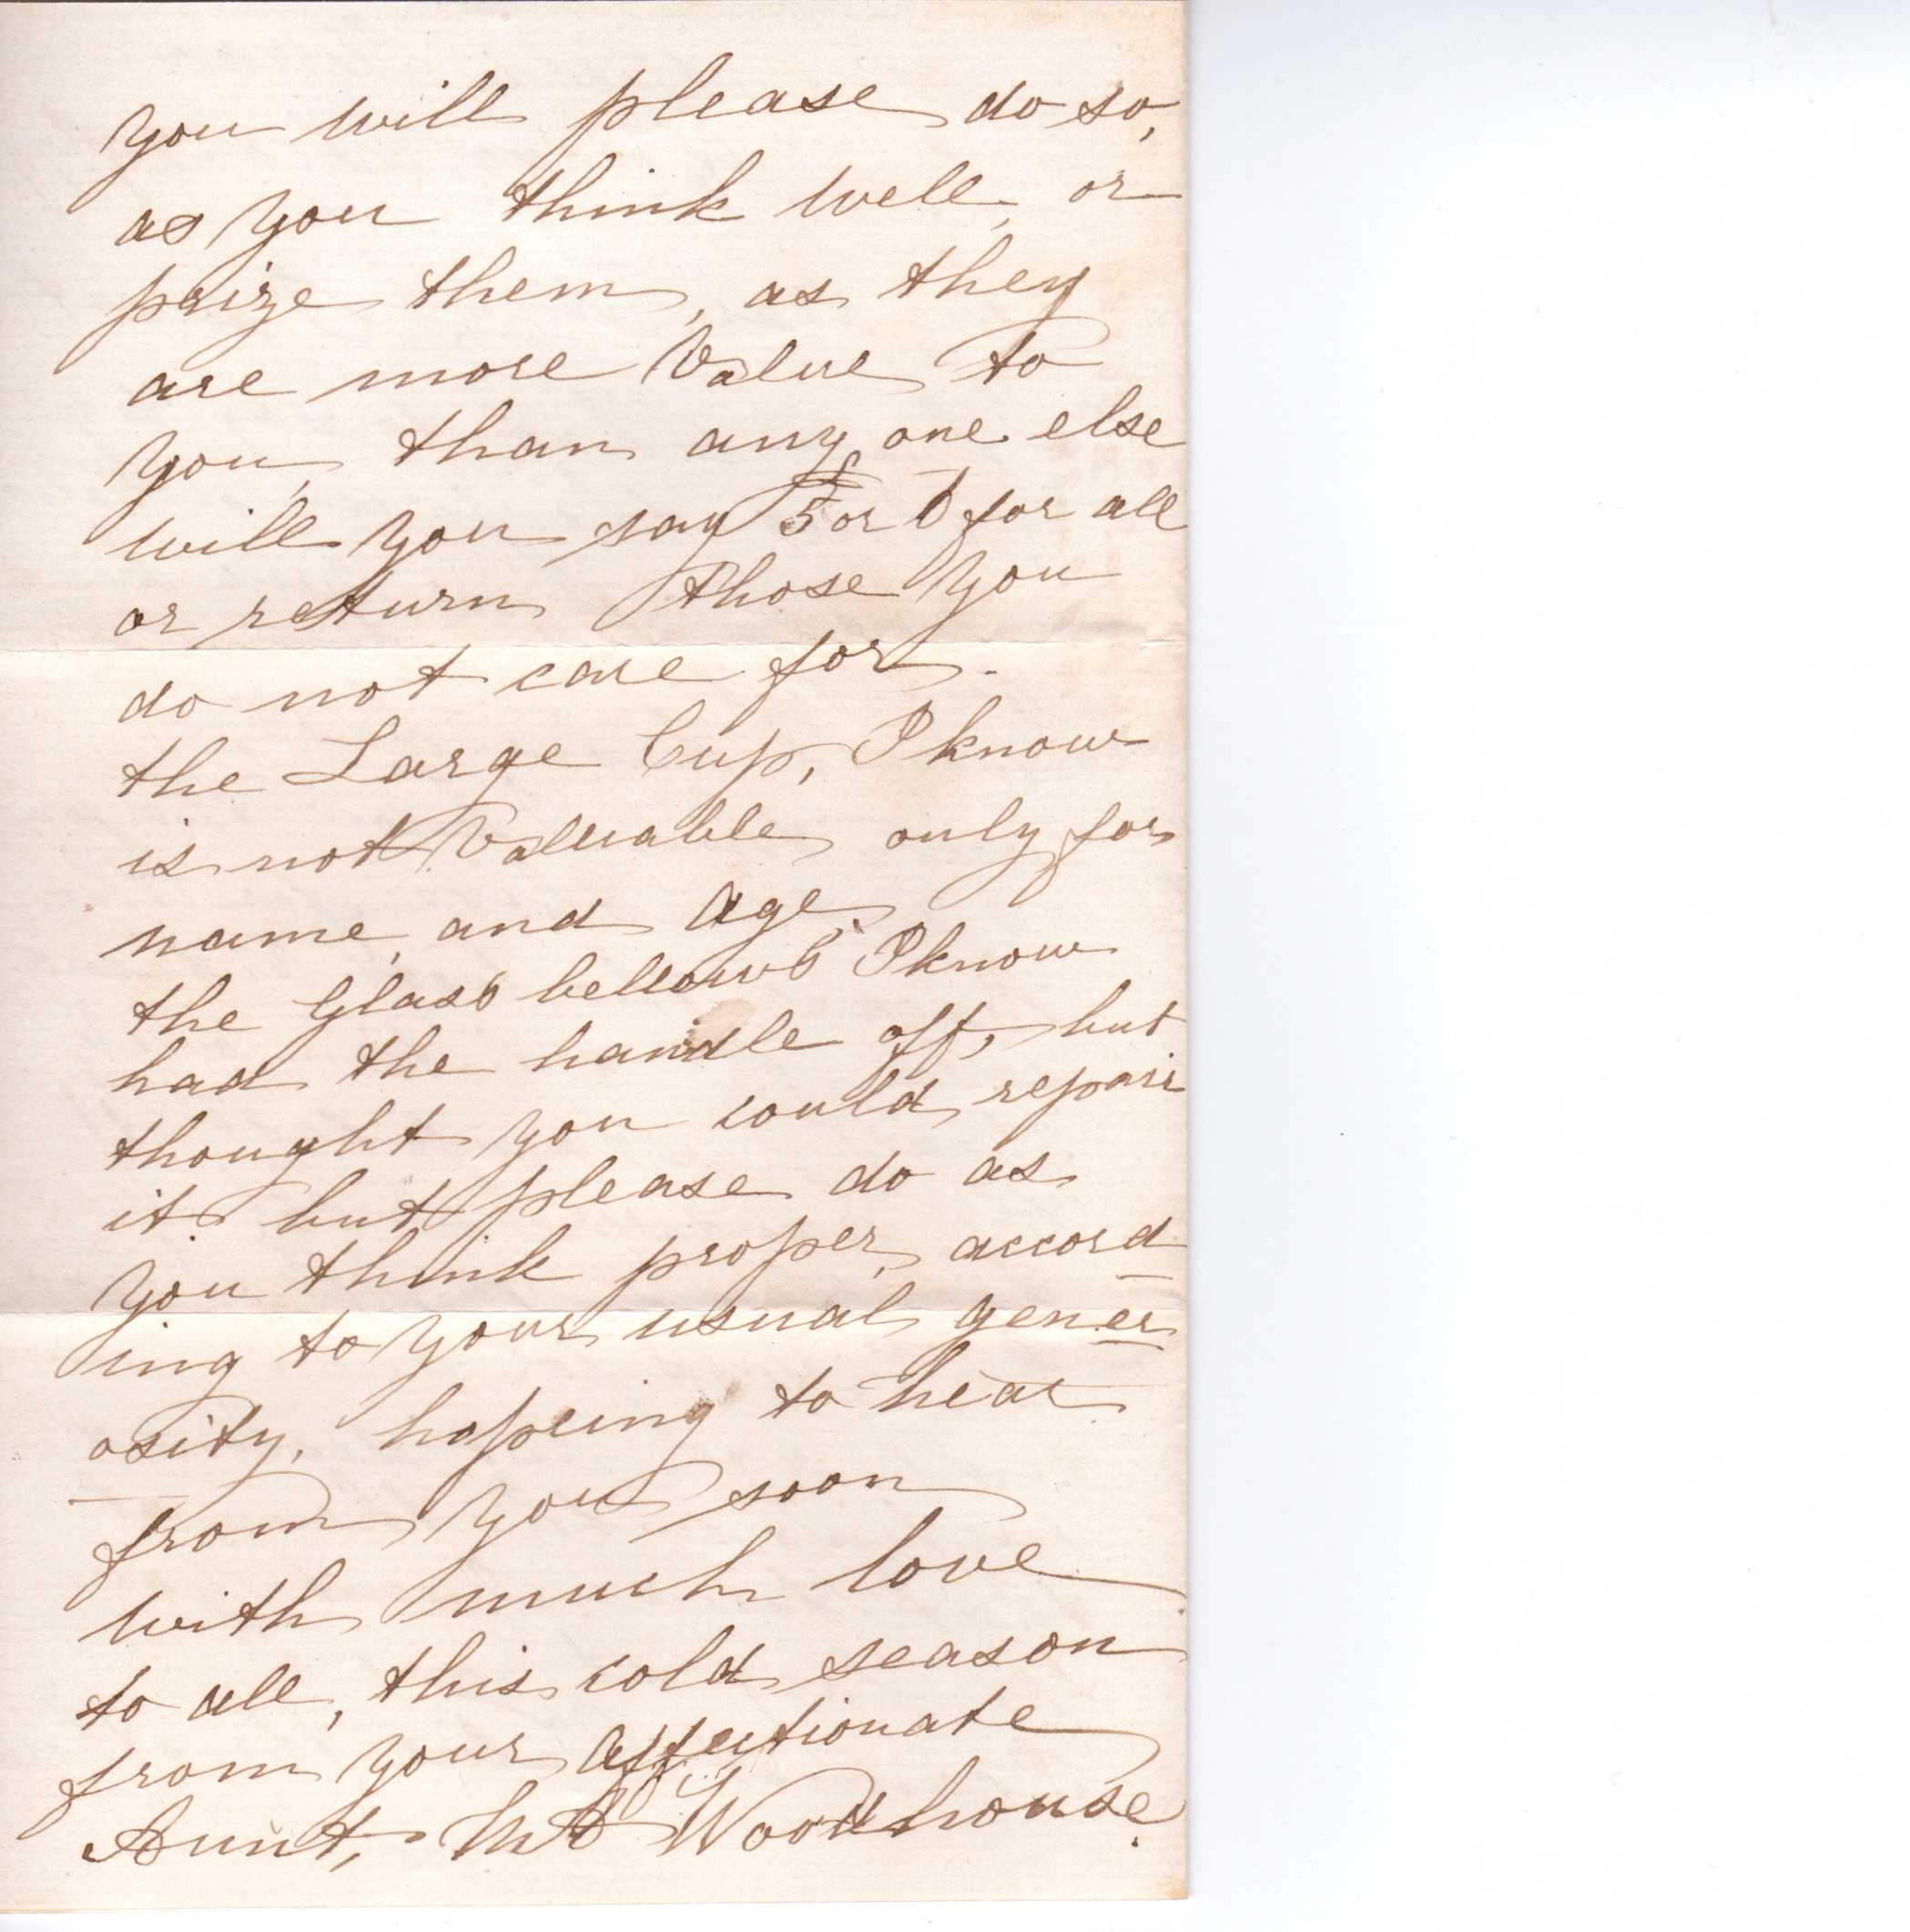 you will please do so,
as you think well, or
prize them, as they
are more Value to
you, than any one else
will you say £5 or 6 for all
or return those you
do not care for.
the Large Cup, I know
is not Valuable only for
name, and Age.
the Glass bellows I know
had the handle off, but
thought you could repair
it but please do as
you think proper, accord
ing to your usual gener
osity, hopeing to hear
from you soon
with much love
to all, this cold season
from your Affectionate
Aunt, Woodhouse.